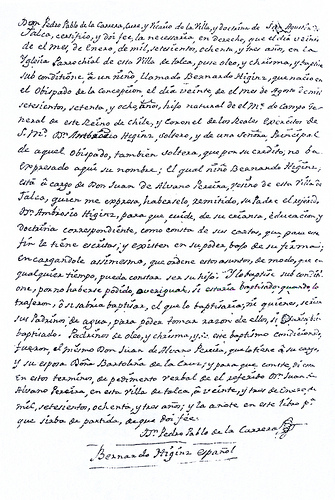 Don Pedro Pablo de la Carrera, Cura, y Vicario de la Villa, y doctrina de San Agustin de
Talca, certifico, y doi fee, la necesaria en derecho, que el dia veinte
de el mes, de Enero, de mil, setesientos, ochenta, y tres años, en la
Yglesia Parrochial de esta Villa de talca, puse oleo, y chrisma, y baptise
sub conditione, â un niño, llamado Bernardo Higinz, que nacio en
el Obispado de la Concepcion el dia veinte, de el mes de Agosto de mil
setesientos, setenta, y ocho, años, hijo natural de el Mre. de Campo Ge-
neral de este Reino de Chile, y Coronel de los Reales Exércitos de
S. M. Dn. Ambrosio Higinz, soltero, y de una Señora Principal
de aquel Obispado, tambien soltera, que por su credito, no ba
expresado aqui su nombre; El qual niño Bernardo Higinz,
está â cargo de Don Juan de Alvano Pereira, vesino de esta Villa de
Talca, quien me expresa, habersele, remitido, su Padre el referido,
Dn. Ambrosio Higinz, para que, cuide, de su crianza, educacion, y
doctrina correspondiente, como consta de sus cartas, que para este
fin le tiene escritas, y existen en su poder, bajo de su firma;
encargandole assimesmo, que ordene estos asuntos, de modo, que en
qualquier tiempo, pueda constar ser su hijo. Y lo baptise sub conditi-
one, por no haberse podido, averiguar, si estaria baptisado, quando lo
trajeron, ô si sabria baptisar, el que lo baptisaria, ni quienes, serian
sus Padrinos de agua, para poder tomar razon de ellos, si estaria bien
baptisado. Padrinos de oleo, y chrisma, y, de este baptismo condicionado,
fueron, el mismo Don Juan de Alvano Pereira, que lo tiene â su cargo,
y su esposa Doña Bartolina de la Cruz, y para que, conste, di esta
en estos terminos, de pedimento verbal de el referido Dn. Juan de
Alvano Pereira, en esta Villa de talca, â veinte, y tres de Enero, de
mil, setesientos, ochenta, y tres años; y la anote en este libro pa. que
que sirba de partida, de que doi fee.
Dn. Pedro Pablo de la Carrera
Bernardo Higinz español